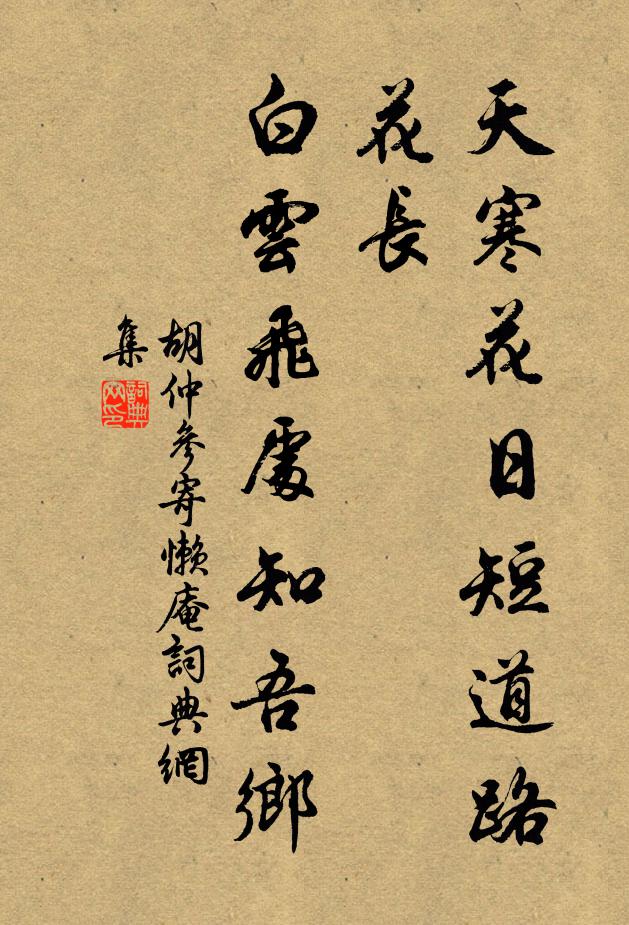 天寒花日短道路
花長
白雲飛處知吾鄉
胡仲參寄懶庵詞典網
集
詞典
网印